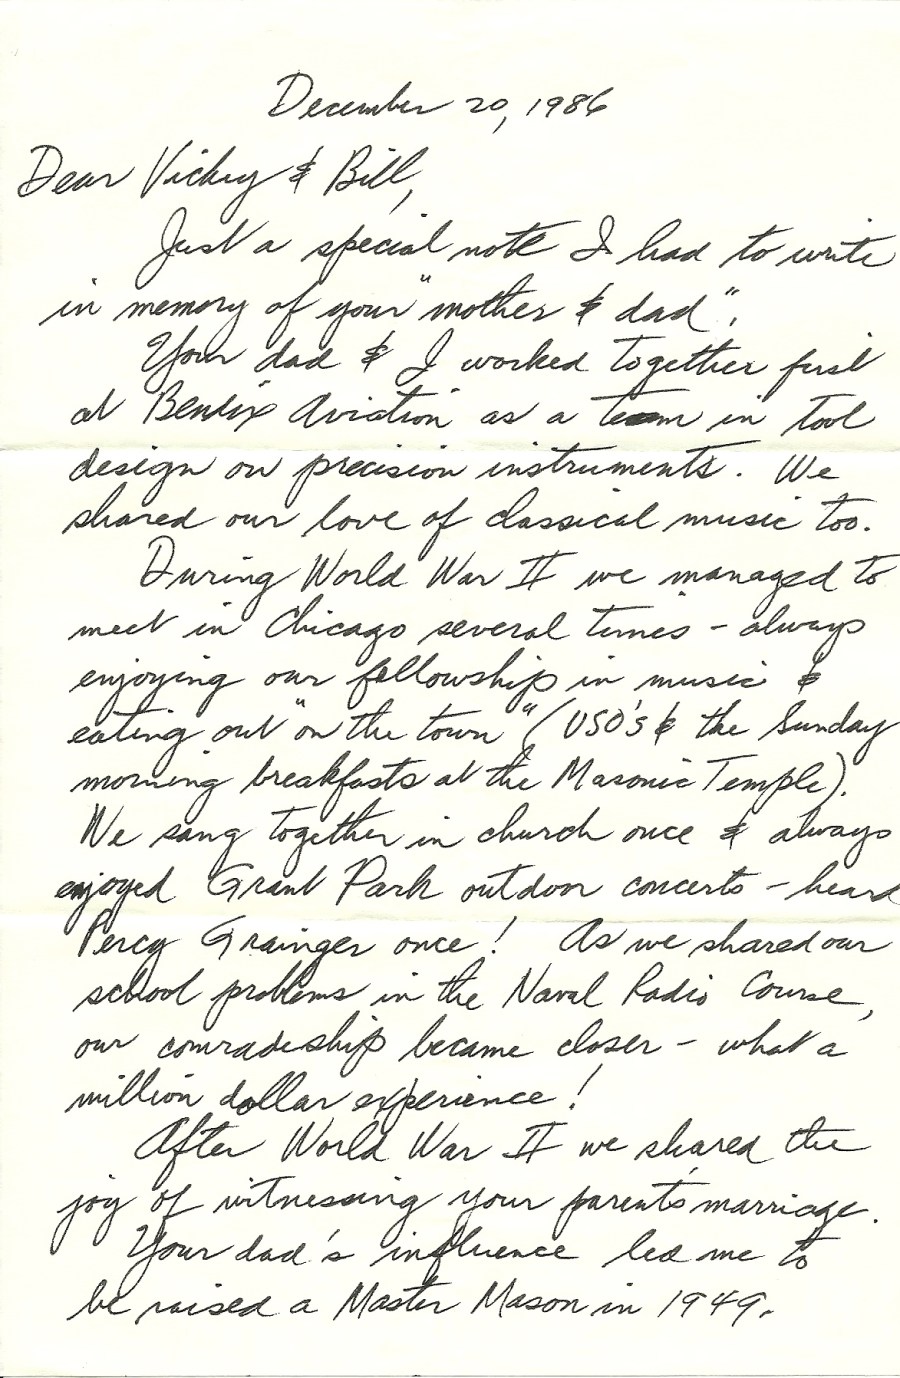 December 20, 1986
Dear Vickey & Bill,
Just a special note I had to write
in memory of your "mother & dad".
Your dad & I worked together first
at Bendix Aviation as a team in Tool
design on precision instruments. We
shared our love of classical music too.
During World War II we managed to
meet in Chicago several times - always
enjoying our fellowship in music &
eating out "on the town" (USO's & the Sunday
morning breakfasts at the Masonic Temple).
We sang together in church once & always
enjoyed Grant Park outdoor concerts - heard
Percy Grainger once! As we shared our
school problems in the Naval Radio Course,
our comradeship became closer - what a
million dollar experience!
After World War II we shared the
joy of witnessing your parents marriage.
Your dad's influence led me to
be raised a Master Mason in 1949.